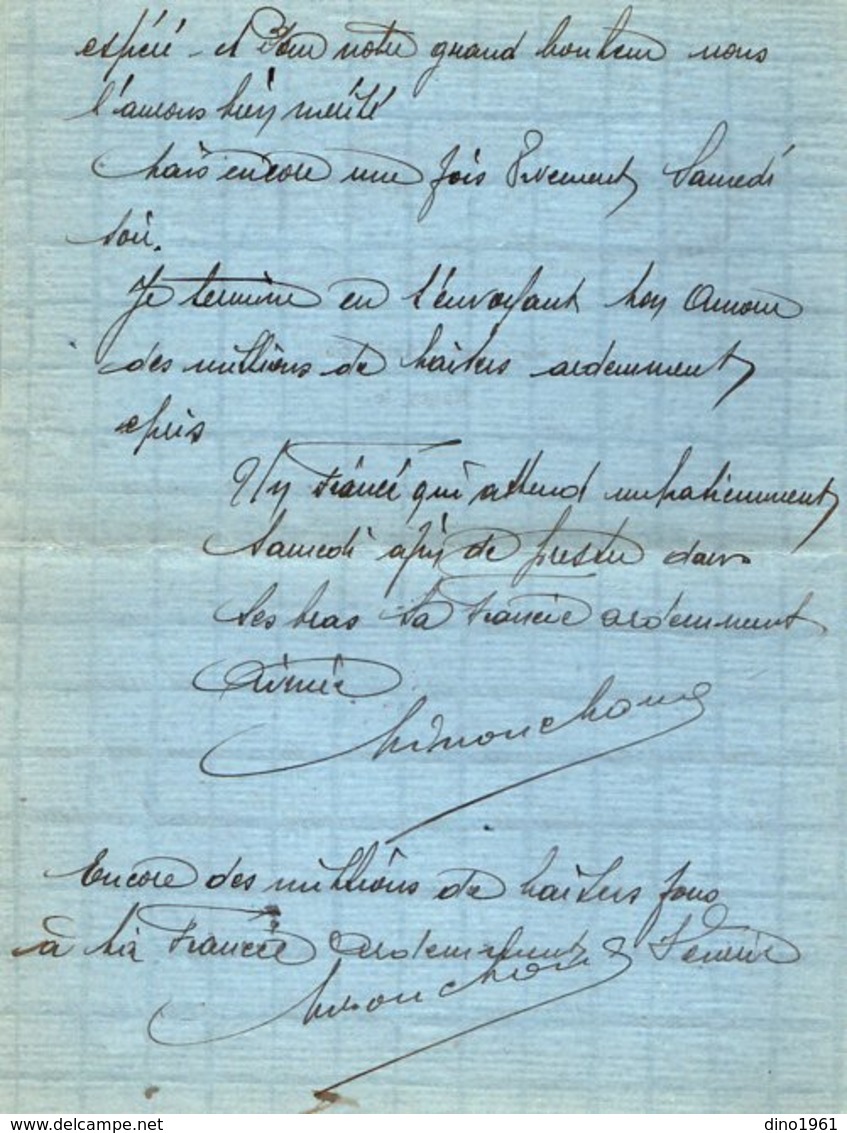 espéré - et Pour notre grand bonheur nous
l'aurons bien mérité
Mais encore une fois Vivement Samedi
soir.
Je termine en t'envoyant Mon Amour
des millions de baisers ardemment
epris
Un Fiancé qui attend impatiemment
Samedi afin de presser dans
ses bras Sa Fiancée ardemment
Aimée
Encore des millions de baisers fous
à Ma Fiancée ardemment
delcampe.net
dino1961